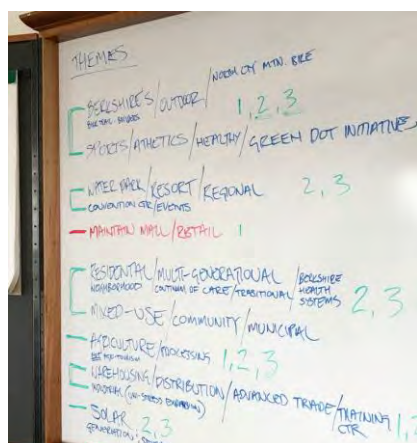 THEMES
BERKSHIRES/OUTDOOR/NORTH CTY MTN. BIKE
1, 2, 3
SPORTS/ATHETICS/HEALTHY/GREEN DOT INITIATIVE
WATER PARK/RESORT/REGIONAL 2, 3
CONVENTION CTR/EVENTS
MAINTAIN MALL/RETAIL 1
RESIDENTAL/MULTI-GENERATIONAL/BERKSHIRE HEALTH SYSTEMS
NEIGHBORHOOD CONTINUM OF CARE/TRADITIONAL 2, 3
MIXED-USE/COMMUNITY/MUNICIPAL
AGRICULTURE/PROCESSING 1, 2, 3
WAREHOUSING/DISTRIBUTION/ADVANCED TRADE/TRAINING CTR
INDUSTRIAL 1,
SOLAR 2, 3
GENERATION